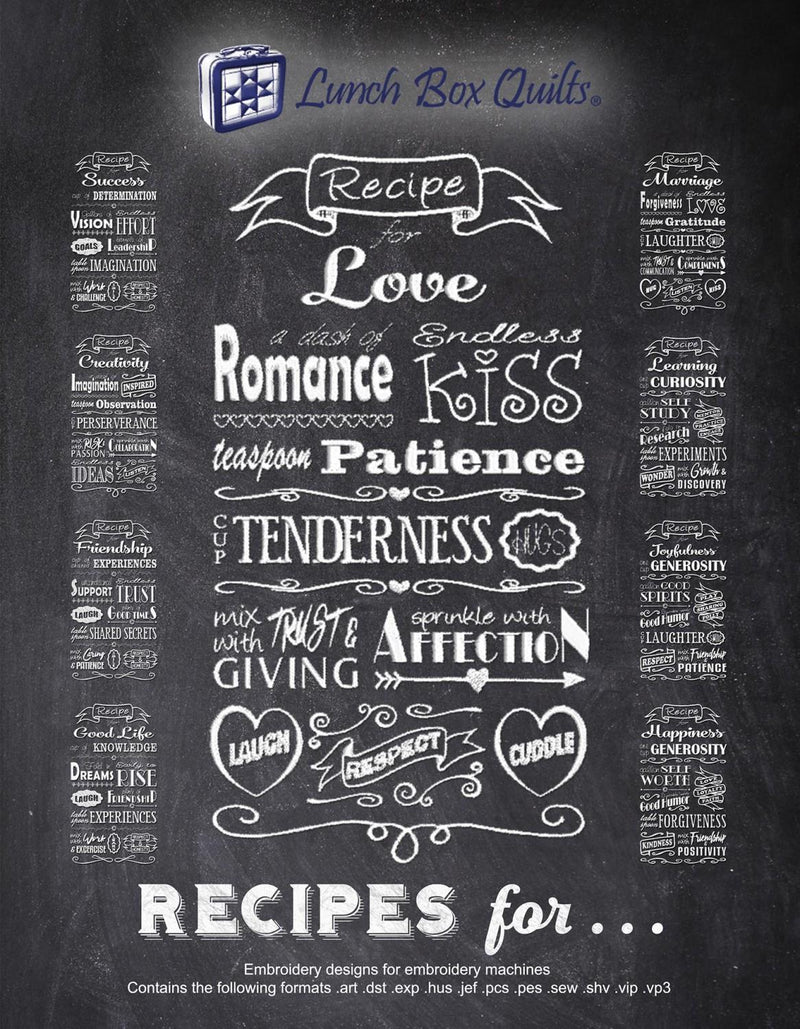 Lunch Box Quilts®
Recipe
for
Love
a dash of
Romance
Endless
KiSS
teaspoon Patience
CUP TENDERNESS HUGS
mix with TRUST & GIVING
sprinkle with
AFFECTION
LAUGH RESPECT CUDDLE
Recipe
Success
cup of DETERMINATION
Endless
VISION EFFORT
GOALS LeadershiP
table spoon IMAGINATION
mix with Work & CHALLENGE
Recipe
for
Creativity
Imagination INSPIRED
teaspoon Observation
PERSERVERANCE
mix with RISK & PASSION
sprinkle with
COLLABORATION
Endless
IDEAS LISTEN
Recipe
for
Friendship
cup of shared EXPERIENCES
unconditional Endless
SUPPORT TRUST
LAUGH GOOD TIMES
table spoon SHARED SECRETS
mix with Caring & PATIENCE
Recipe
for
Good Life
cup of KNOWLEDGE
Early to
DREAMS RISE
LAUGH FRIENDSHIP
table spoon EXPERIENCES
mix with Work & EXCERCISE
Recipe
for
Marriage
Forgiveness LOVE
teaspoon Gratitude
LAUGHTER
mix with TRUST & COMMUNICATION
sprinkle with
COMPLIMENTS
HUG LISTEN KISS
Recipe
for
Learning
cup CURIOSITY
gallon SELF
STUDY
Research
table spoon EXPERIMENTS
WONDER mix with Growth & DISCOVERY
Recipe
for
Joyfulness
cup GENEROSITY
gallon GOOD
SPIRITS PLAY SHARING TRUST
Good Humor
LAUGHTER
RESPECT mix with Friendship
PATIENCE
Recipe
for
Happiness
cup GENEROSITY
gallon SELF
WORTH LOVE LOYALTY FAITH
Good Humor
table spoon FORGIVENESS
KINDNESS mix with Friendship
POSITIVITY
RECIPES for...
Embroidery designs for embroidery machines
Contains the following formats .art .dst .exp .hus .jef .pcs .pes .sew .shv .vip .vp3